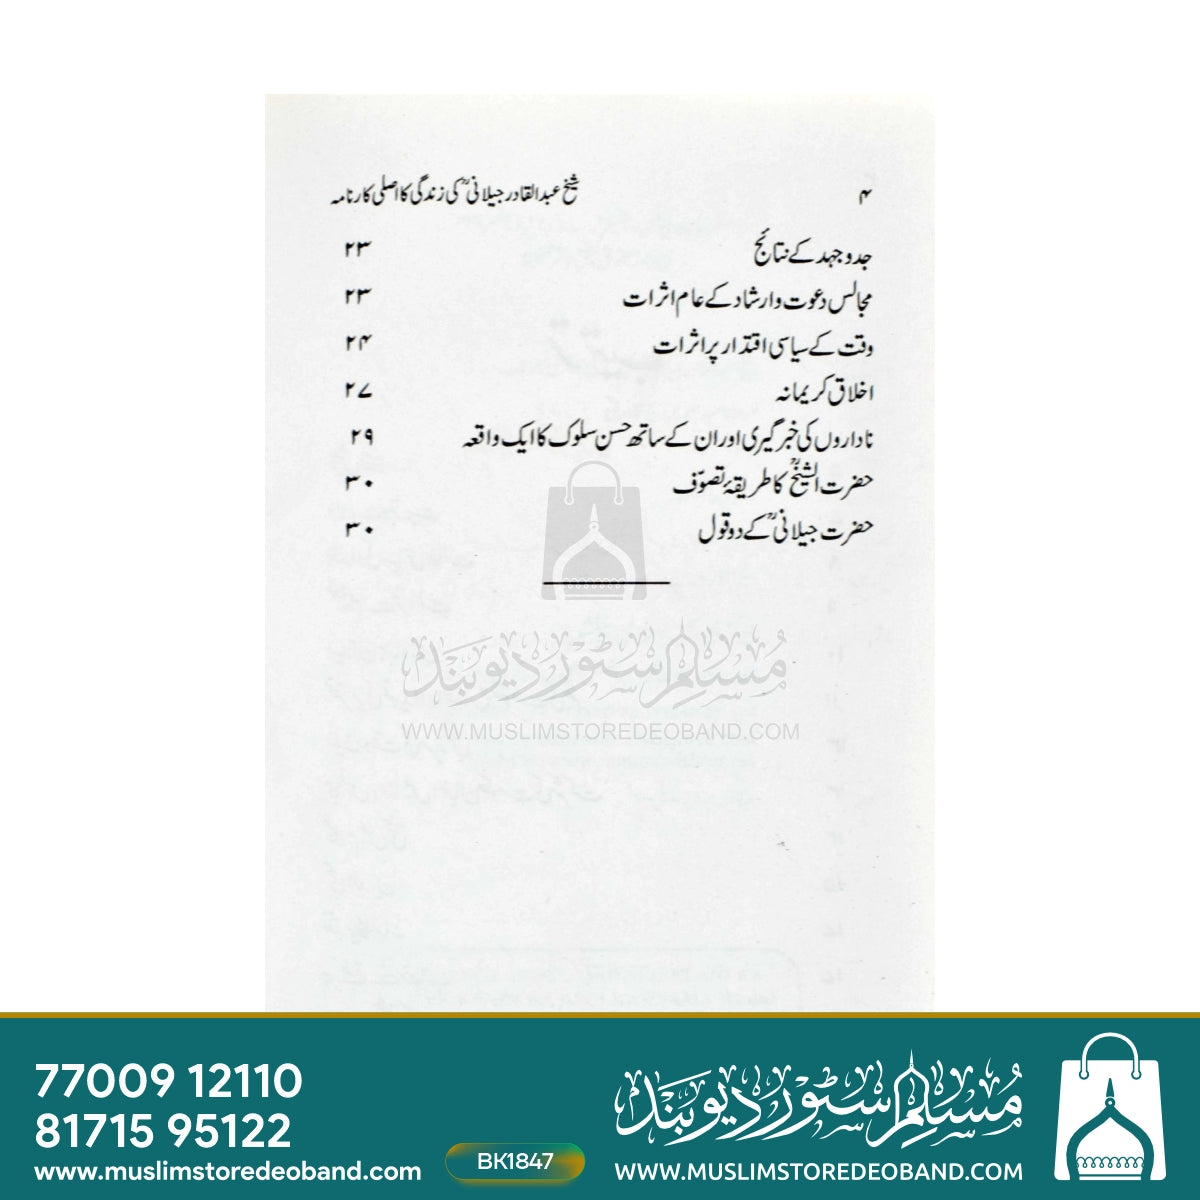 ۴ شیخ عبدالقادر جیلانیؒ کی زندگی کا اصلی کارنامہ
جدوجہد کے نتائج ۲۳
مجالس دعوت و ارشاد کے عام اثرات ۲۳
وقت کے سیاسی اقتدار پر اثرات ۲۴
اخلاق کریمانہ ۲۷
ناداروں کی خبر گیری اور ان کے ساتھ حسن سلوک کا ایک واقعہ ۲۹
حضرت الشیخؒ کا طریقۂ تصوّف ۳۰
حضرت جیلانیؒ کے دو قول ۳۰
مُسلم سٹور دیوبند
WWW.MUSLIMSTOREDEOBAND.COM
77009 12110
81715 95122
www.muslimstoredeoband.com
BK1847
مُسلم سٹور دیوبند
WWW.MUSLIMSTOREDEOBAND.COM